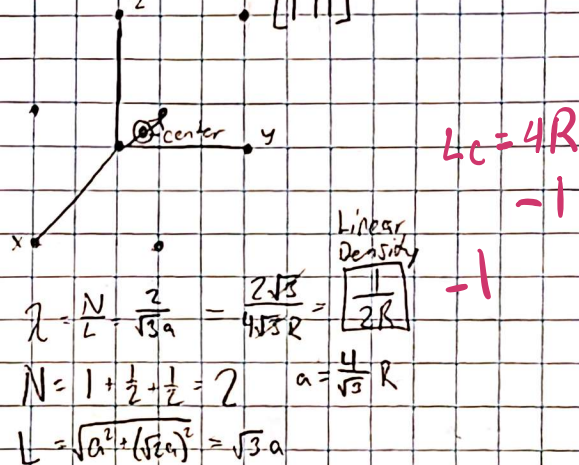 z
[111]
center
y
Lc = 4R
-1
x
Linear
Density
λ = N/L = 2/√3a = 2√3/4√3R = 1/2R
-1
N = 1 + 1/2 + 1/2 = 2
a = 4/√3 R
L = √(a² + (√2a)²) = √3a